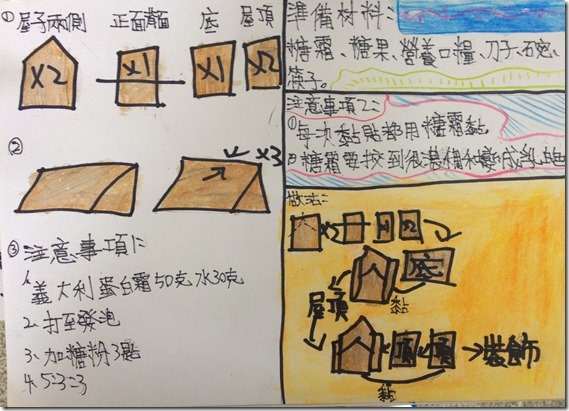 ① 屋子兩側 正面背面 底 屋頂
X2 X1 X1 X2
②
X3
③ 注意事項1:
1. 義大利蛋白霜50克水30克
2. 打至發泡
3. 加糖粉3點
4. 5:3:3
準備材料:
糖霜、糖果、營養口糧、刀子、碗、
筷子。
注意事項2:
①每次黏貼都用糖霜黏
糖霜要
做法:
X2 X2
底
屋頂 黏
頂 頂 →裝飾
黏